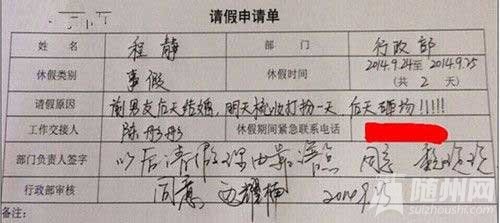 请假申请单
姓 名 程静 部 门 行政部
休假类别 事假 休假时间 2014.9.24至2014.9.25
(共 2 天)
请假原因 前男友后天结婚，明天梳妆打扮一天，后天砸场!!!!!
工作交接人 陈彤彤 休假期间紧急联系电话
部门负责人签字 以后请假理由最 同意
行政部审核 同意 2014
备注:
随州网
suizhoushi.com